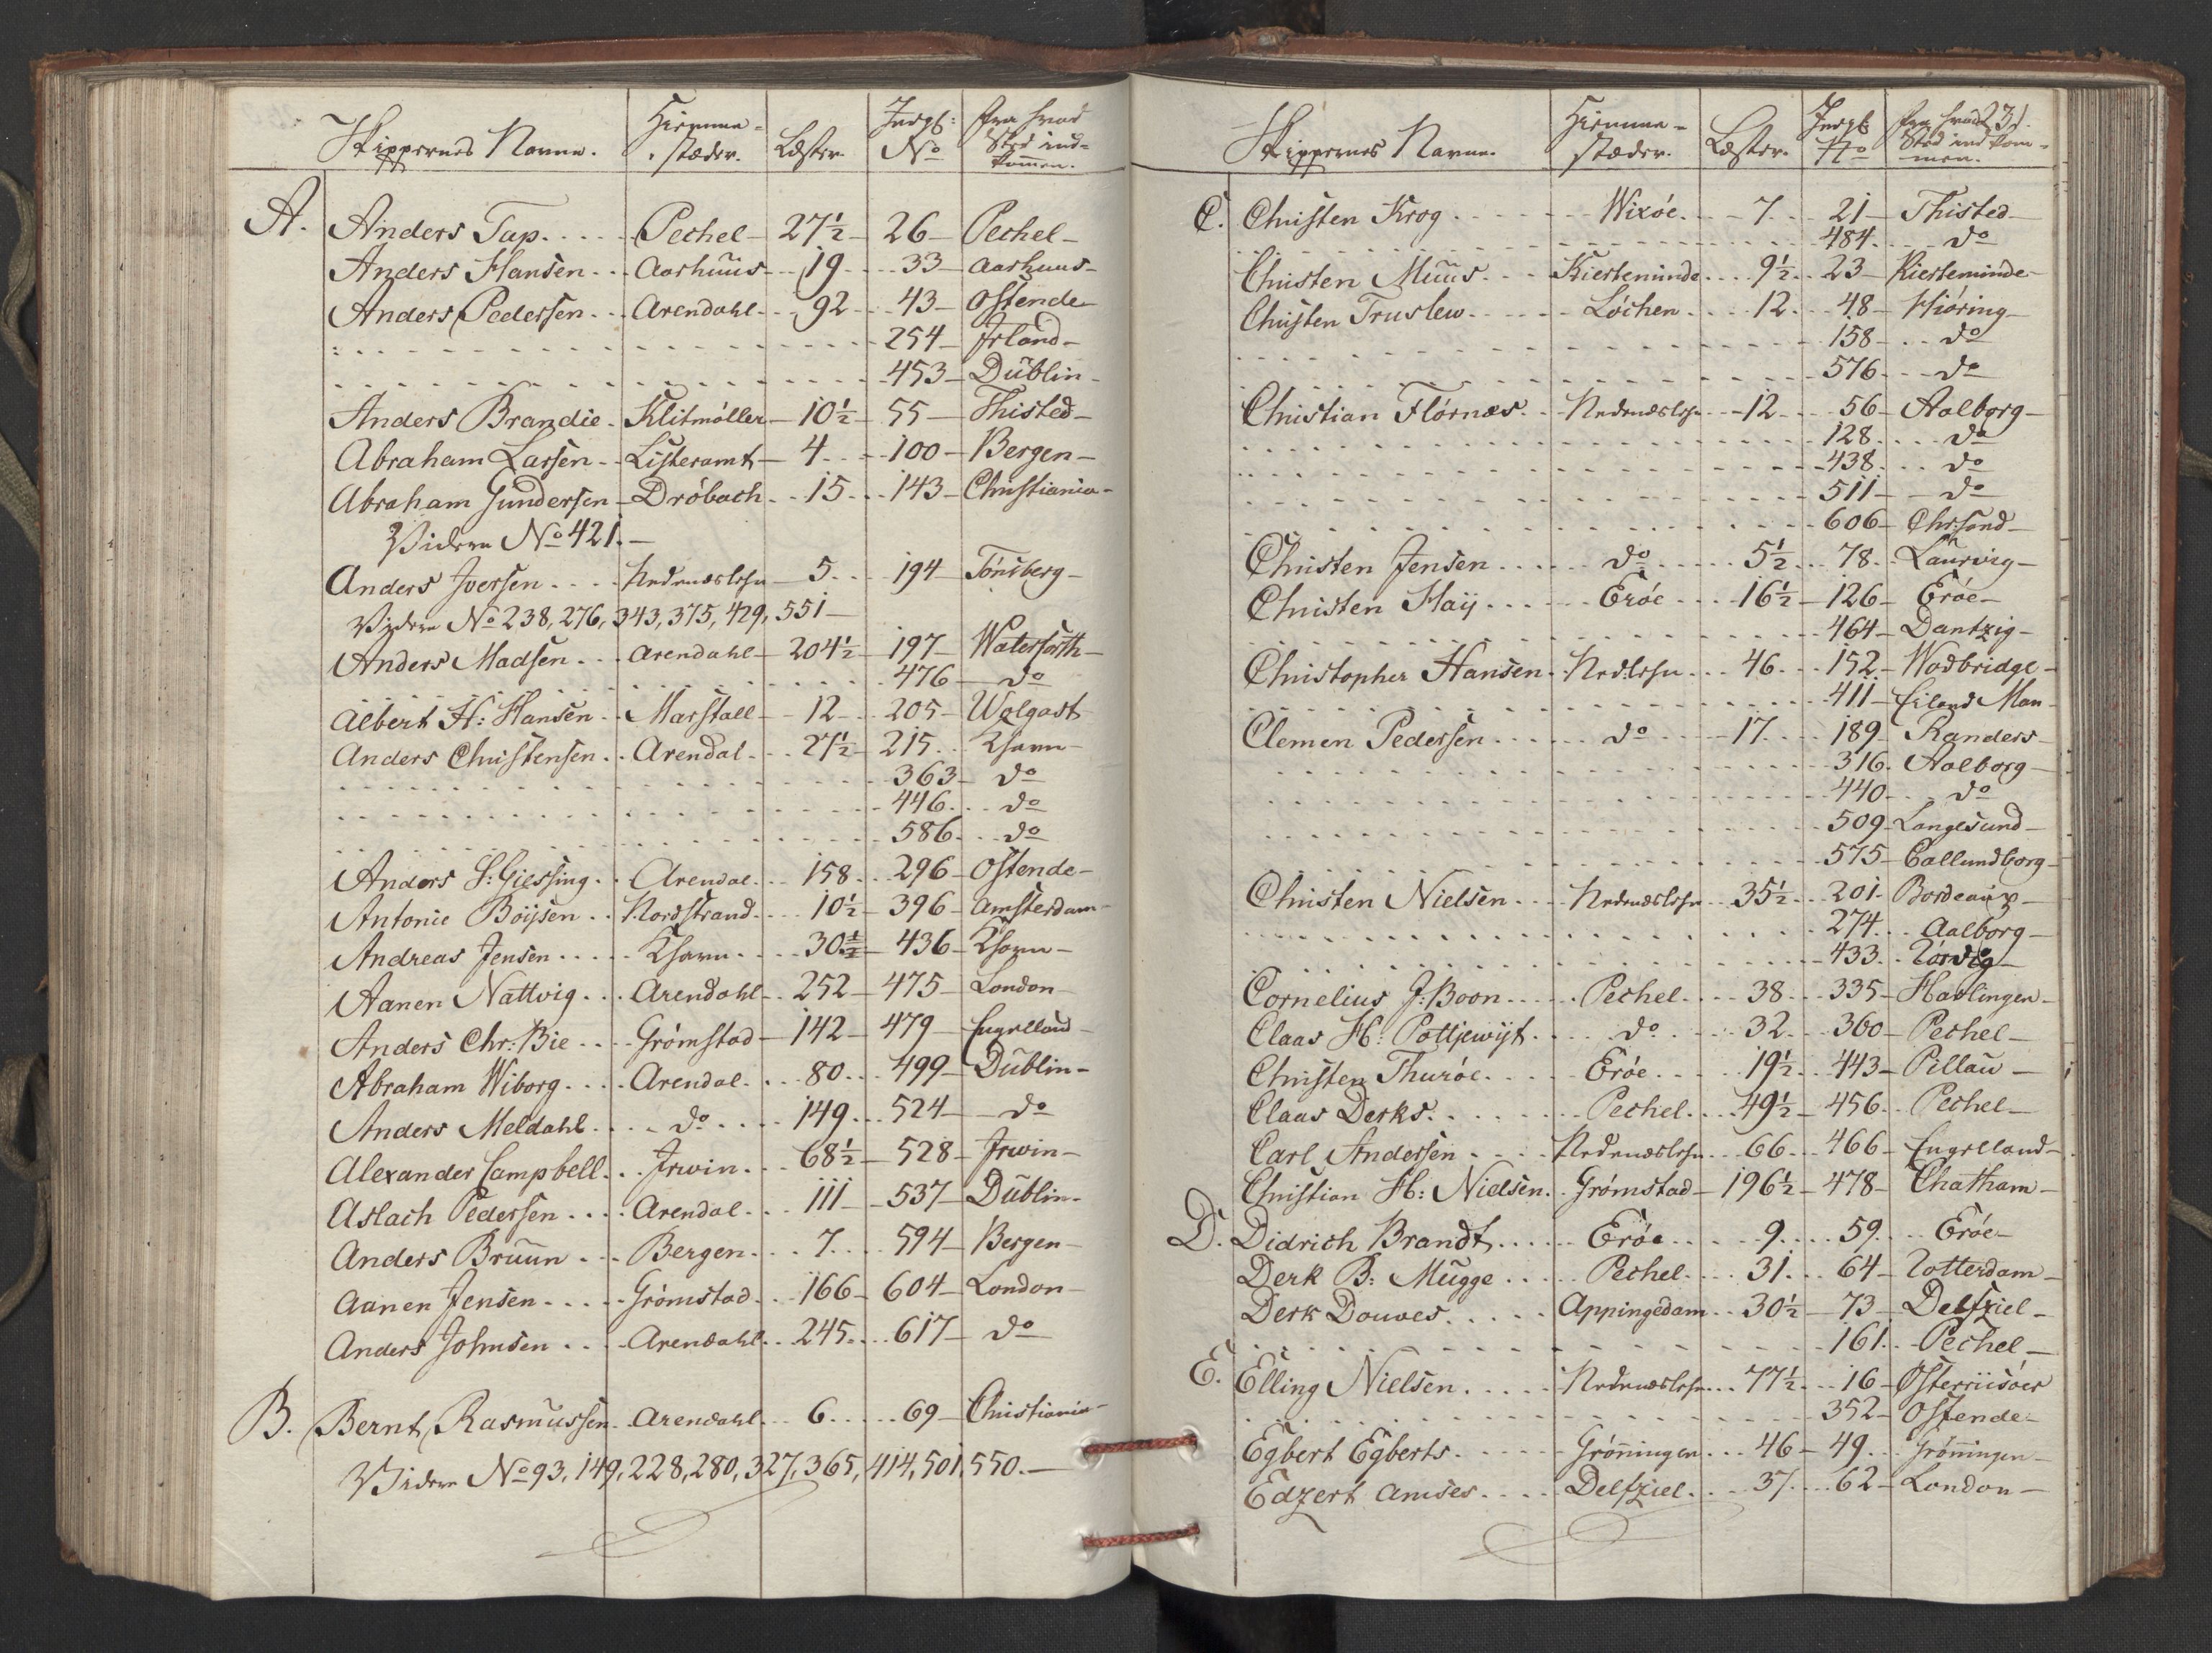 Skippernes Navne. Hiemme-stæder. Læster. Indgf: No fra hvad Sted ind-kommen.
A. Anders Tap. Pechel 27½ 26 Pechel
Anders Hansen Aarhuus 19 33 Aarhuus
Anders Pedersen Arendahl 92 43 Ostende
254 Irland
453 Dublin
Anders Brandie Klitmøller 10½ 55 Thisted
Abraham Larsen Listeramt 4 100 Bergen
Abraham Gundersen Drøbach 15 143 Christiania
Videre No 421.
Anders Iversen Nedenæslehn 5 194 Tønsberg
Videre No 238, 276, 343, 375, 429, 551
Anders Madsen Arendahl 204½ 197 Waterforth
476 do
Albert H: Hansen Marstall 12 205 Wolgast
Anders Christensen Arendal 27½ 215 Khavn
363 do
446 do
586 do
Anders S: Giessing Arendal 158 296 Ostende
Antonie Boijsen Nordstrand 10½ 396 Amsterdam
Andreas Jensen Khavn 30½ 436 Khavn
Aanen Nattvig Arendahl 252 475 London
Anders Chr: Bie Grømstad 142 479 Engelland
Abraham Wiborg Arendal 80 499 Dublin
Anders Meldahl do 149 524 do
Alexander Campbell Irwin 68½ 528 Irwin
Aslach Pedersen Arendal 111 537 Dublin
Anders Bruun Bergen 7 594 Bergen
Aanen Jensen Grømstad 166 604 London
Anders Johnsen Arendahl 245 617 do
B. Bernt Rasmussen Arendahl 6 69 Christiania
Videre No 93, 149, 228, 280, 327, 365, 414, 501, 550.
Skippernes Navne. Hiemme-stæder. Læster. Indgf No fra hvad Sted indkom-men. 231.
C. Christen Krog Wixøe 7 21 Thisted
484 do
Christen Muus Kierteminde 9½ 23 Kierteminde
Christen Truslew Løchen 12 48 Hiøring
158 do
576 do
Christian Flørnæs Nedenæslehn 12 56 Aalborg
128 do
438 do
511 do
606 Chrsand
Christen Jensen do 5½ 78 Laurvig
Christen Haij Erøe 16½ 126 Erøe
464 Dantzig
Christopher Hansen Ned:lehn 46 152 Wodbridge
411 Eiland Man
Clemen Pedersen do 17 189 Randers
316 Aalborg
440 do
509 Langesund
575 Callundborg
Christen Nielsen Nedenæslehn 35½ 201 Bordeaux
274 Aalborg
433 Rørvig
Cornelius J: Boon Pechel 38 335 Harlingen
Claas H: Pottjewijt do 32 360 Pechel
Christen Thurøe Erøe 19½ 443 Pillau
Claas Derks Pechel 49½ 456 Pechel
Carl Andersen Nedenæslehn 66 466 Engelland
Christian H: Nielsen Grømstad 196½ 478 Chatham
D. Didrich Brandt Erøe 9 59 Erøe
Derk B: Mugge Pechel 31 64 Rotterdam
Derk Douwes Appingedam 30½ 73 Delfziel
161 Pechel
E. Elling Nielsen Nedenæslehn 77½ 16 Østeriisøer
352 Ostende
Egbert Egberts Grønningen 46 49 Grønningen
Edzert Amses Delfziel 37 62 London